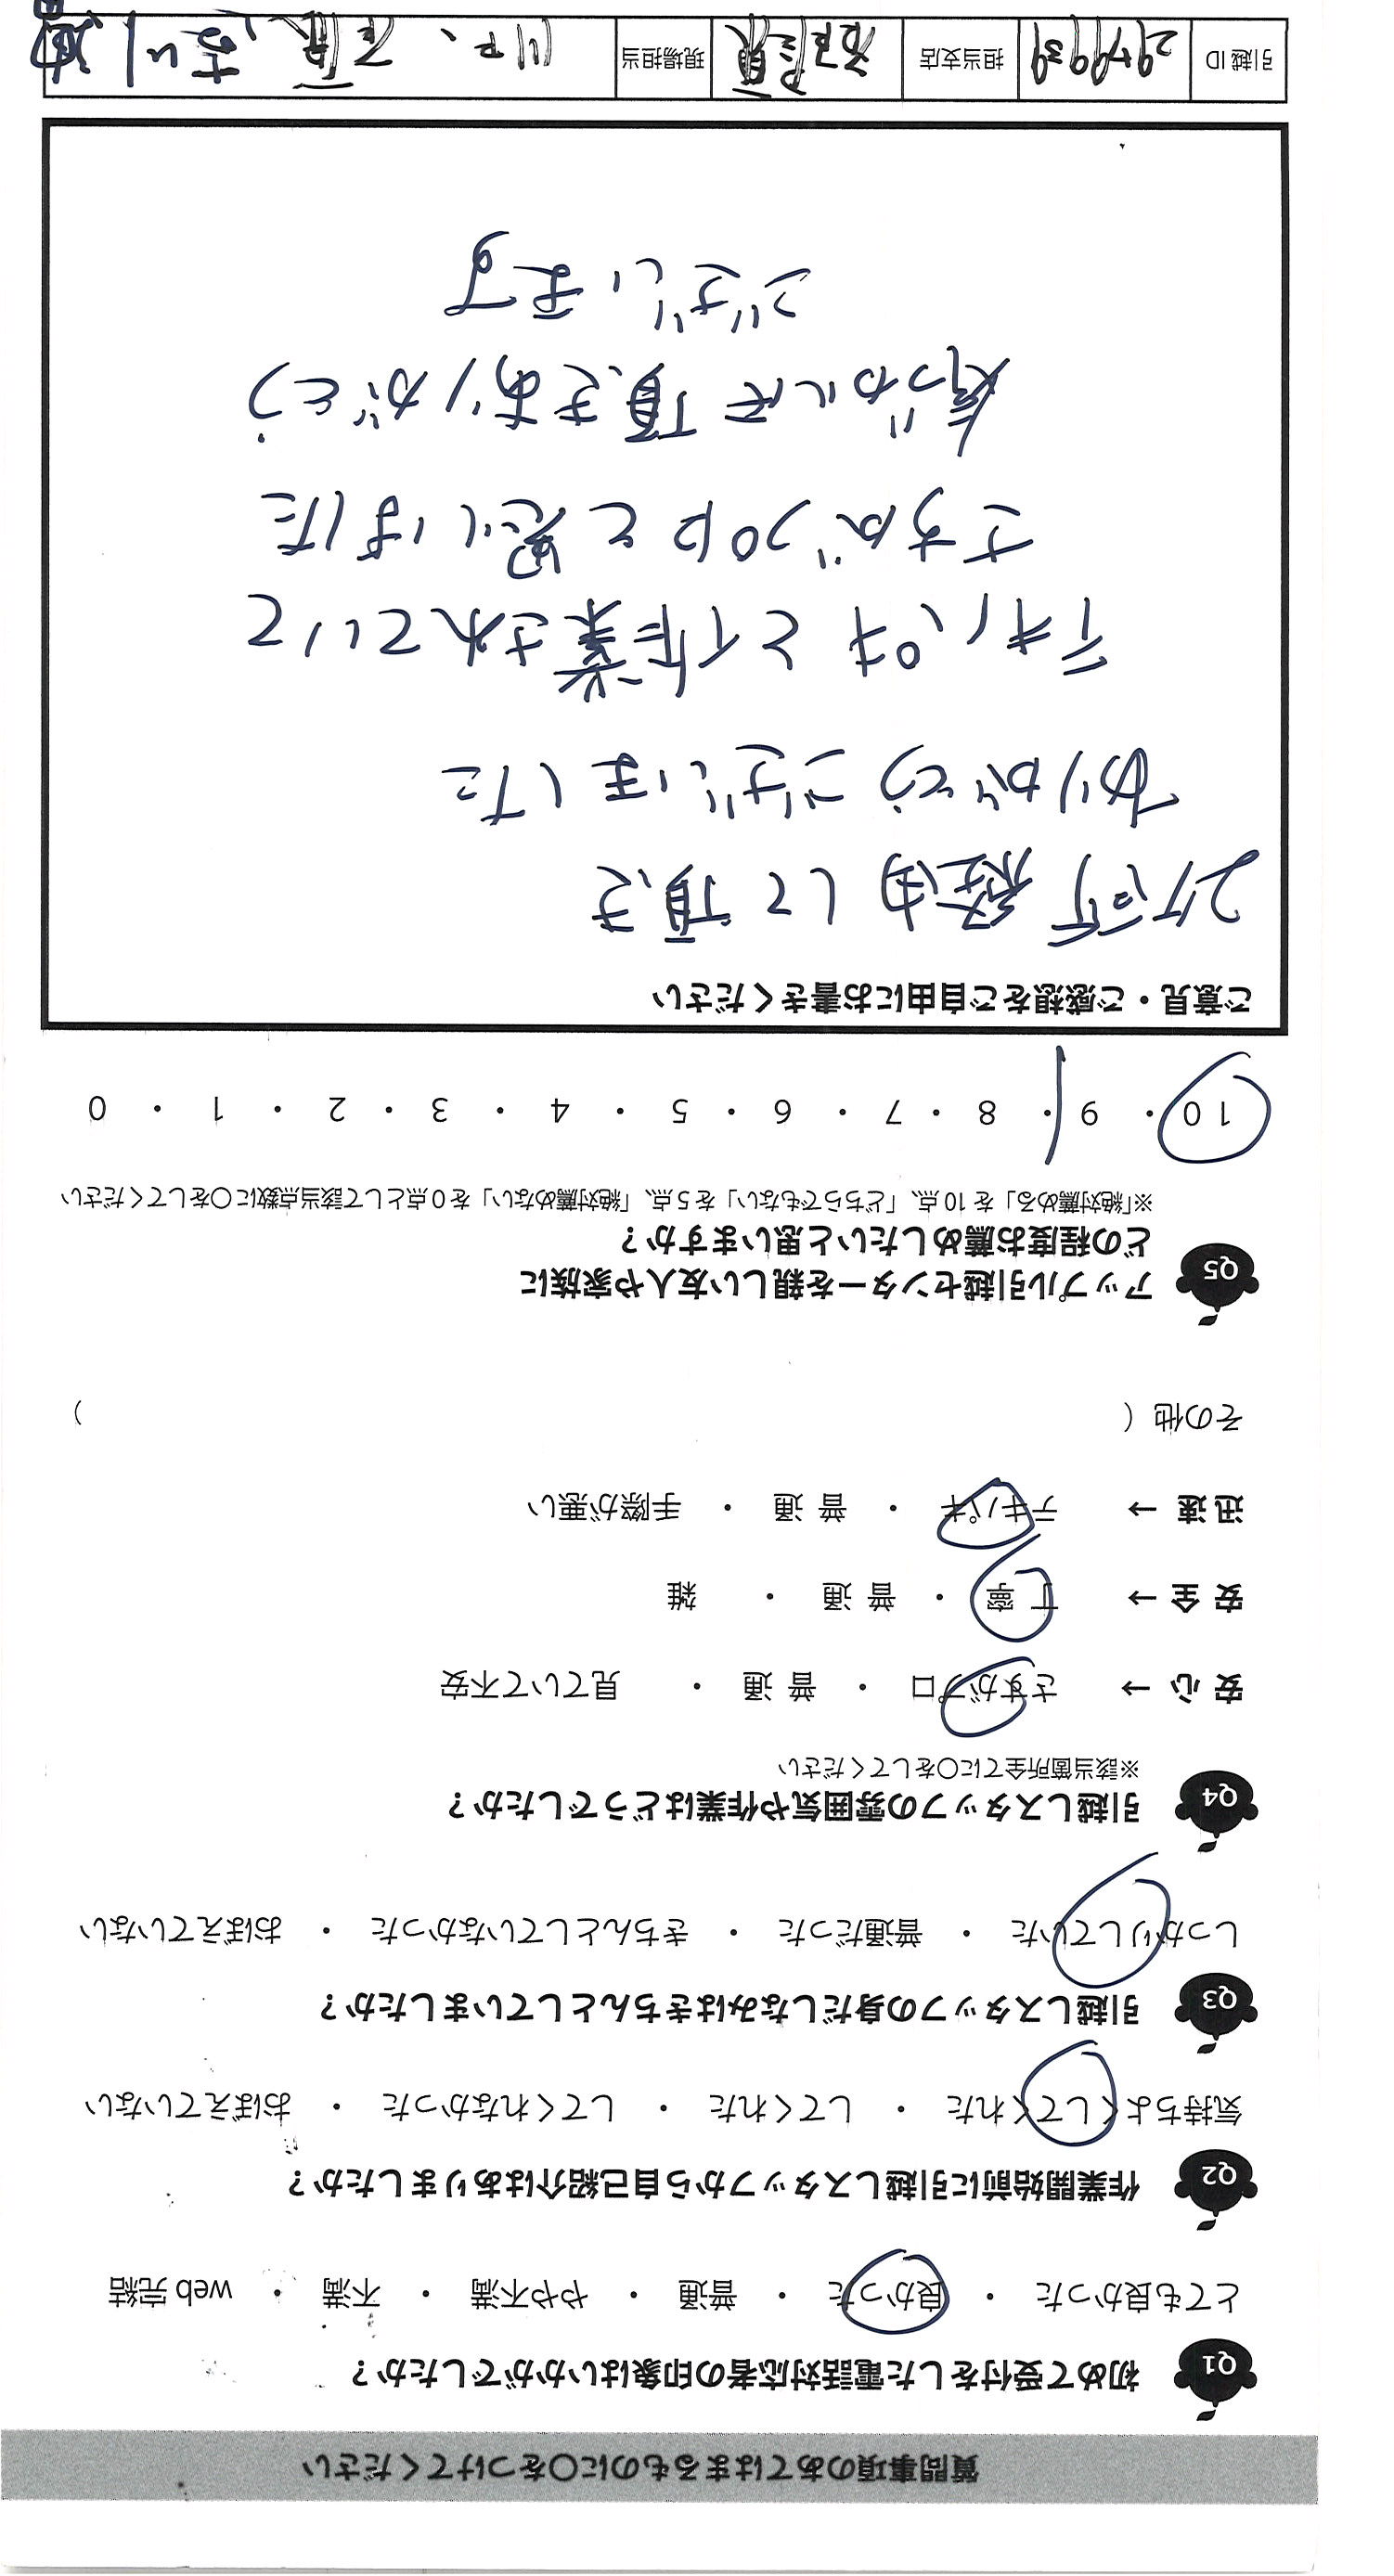 質問事項のあてはまるものに○をつけてください
Q1 初めて受付をした電話対応者の印象はいかがでしたか？
とても良かった ・ 良かった ・ 普通 ・ やや不満 ・ 不満 ・ web 完結
Q2 作業開始前に引越しスタッフから自己紹介はありましたか？
気持ちよくしてくれた ・ してくれた ・ してくれなかった ・ おぼえていない
Q3 引越しスタッフの身だしなみはきちんとしていましたか？
しっかりしていた ・ 普通だった ・ きちんとしていなかった ・ おぼえていない
Q4 引越しスタッフの雰囲気や作業はどうでしたか？
※該当箇所全てに○をしてください
安 心 → さすがプロ ・ 普 通 ・ 見ていて不安
安 全 → 丁 寧 ・ 普 通 ・ 雑
迅 速 → テキパキ ・ 普 通 ・ 手際が悪い
その他（ ）
Q5 アップル引越センターを親しい友人や家族に
どの程度お薦めしたいと思いますか？
※「絶対薦める」を 10 点、「どちらでもない」を 5 点、「絶対薦めない」を 0 点として該当点数に○をしてください
1 0 ・ 9 ・ 8 ・ 7 ・ 6 ・ 5 ・ 4 ・ 3 ・ 2 ・ 1 ・ 0
ご意見・ご感想をご自由にお書きください
2ケ所 経由して頂き
ありがとうございました
テキパキと作業されていて
さすがプロと思いました
気づかいまで頂きありがとう
ございます
引越 ID 担当支店 現場担当